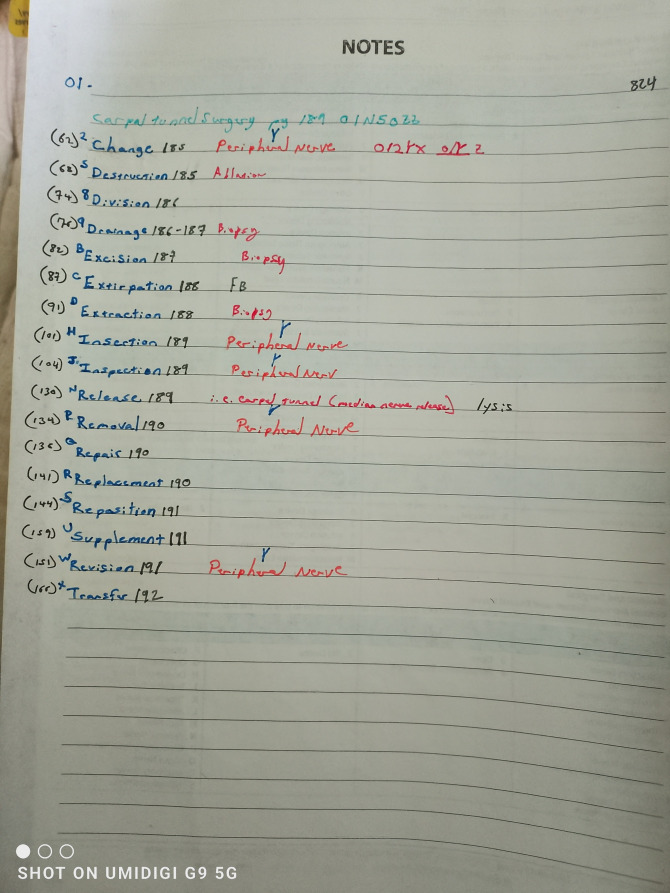 NOTES
01-
824
Carpal tunnel Surgery pg 189 01N50ZZ
(62) 2 Change 185 Peripheral Nerve Y 012YX 0/Y Z
(68) 5 Destruction 185 Ablation
(74) 8 Division 186
(76) 9 Drainage 186-187 Biopsy
(82) B Excision 187 Biopsy
(87) C Extirpation 188 FB
(91) D Extraction 188 Biopsy
(101) H Insertion 189 Peripheral Nerve Y
(104) J Inspection 189 Peripheral Nerv Y
(130) N Release 189 i.e. carpal tunnel (median nerve release) lysis
(134) P Removal 190 Peripheral Nerve Y
(136) Q Repair 190
(141) R Replacement 190
(144) S Reposition 191
(159) U Supplement 191
(151) W Revision 191 Peripheral Nerve Y
X Transfer 192
SHOT ON UMIDIGI G9 5G